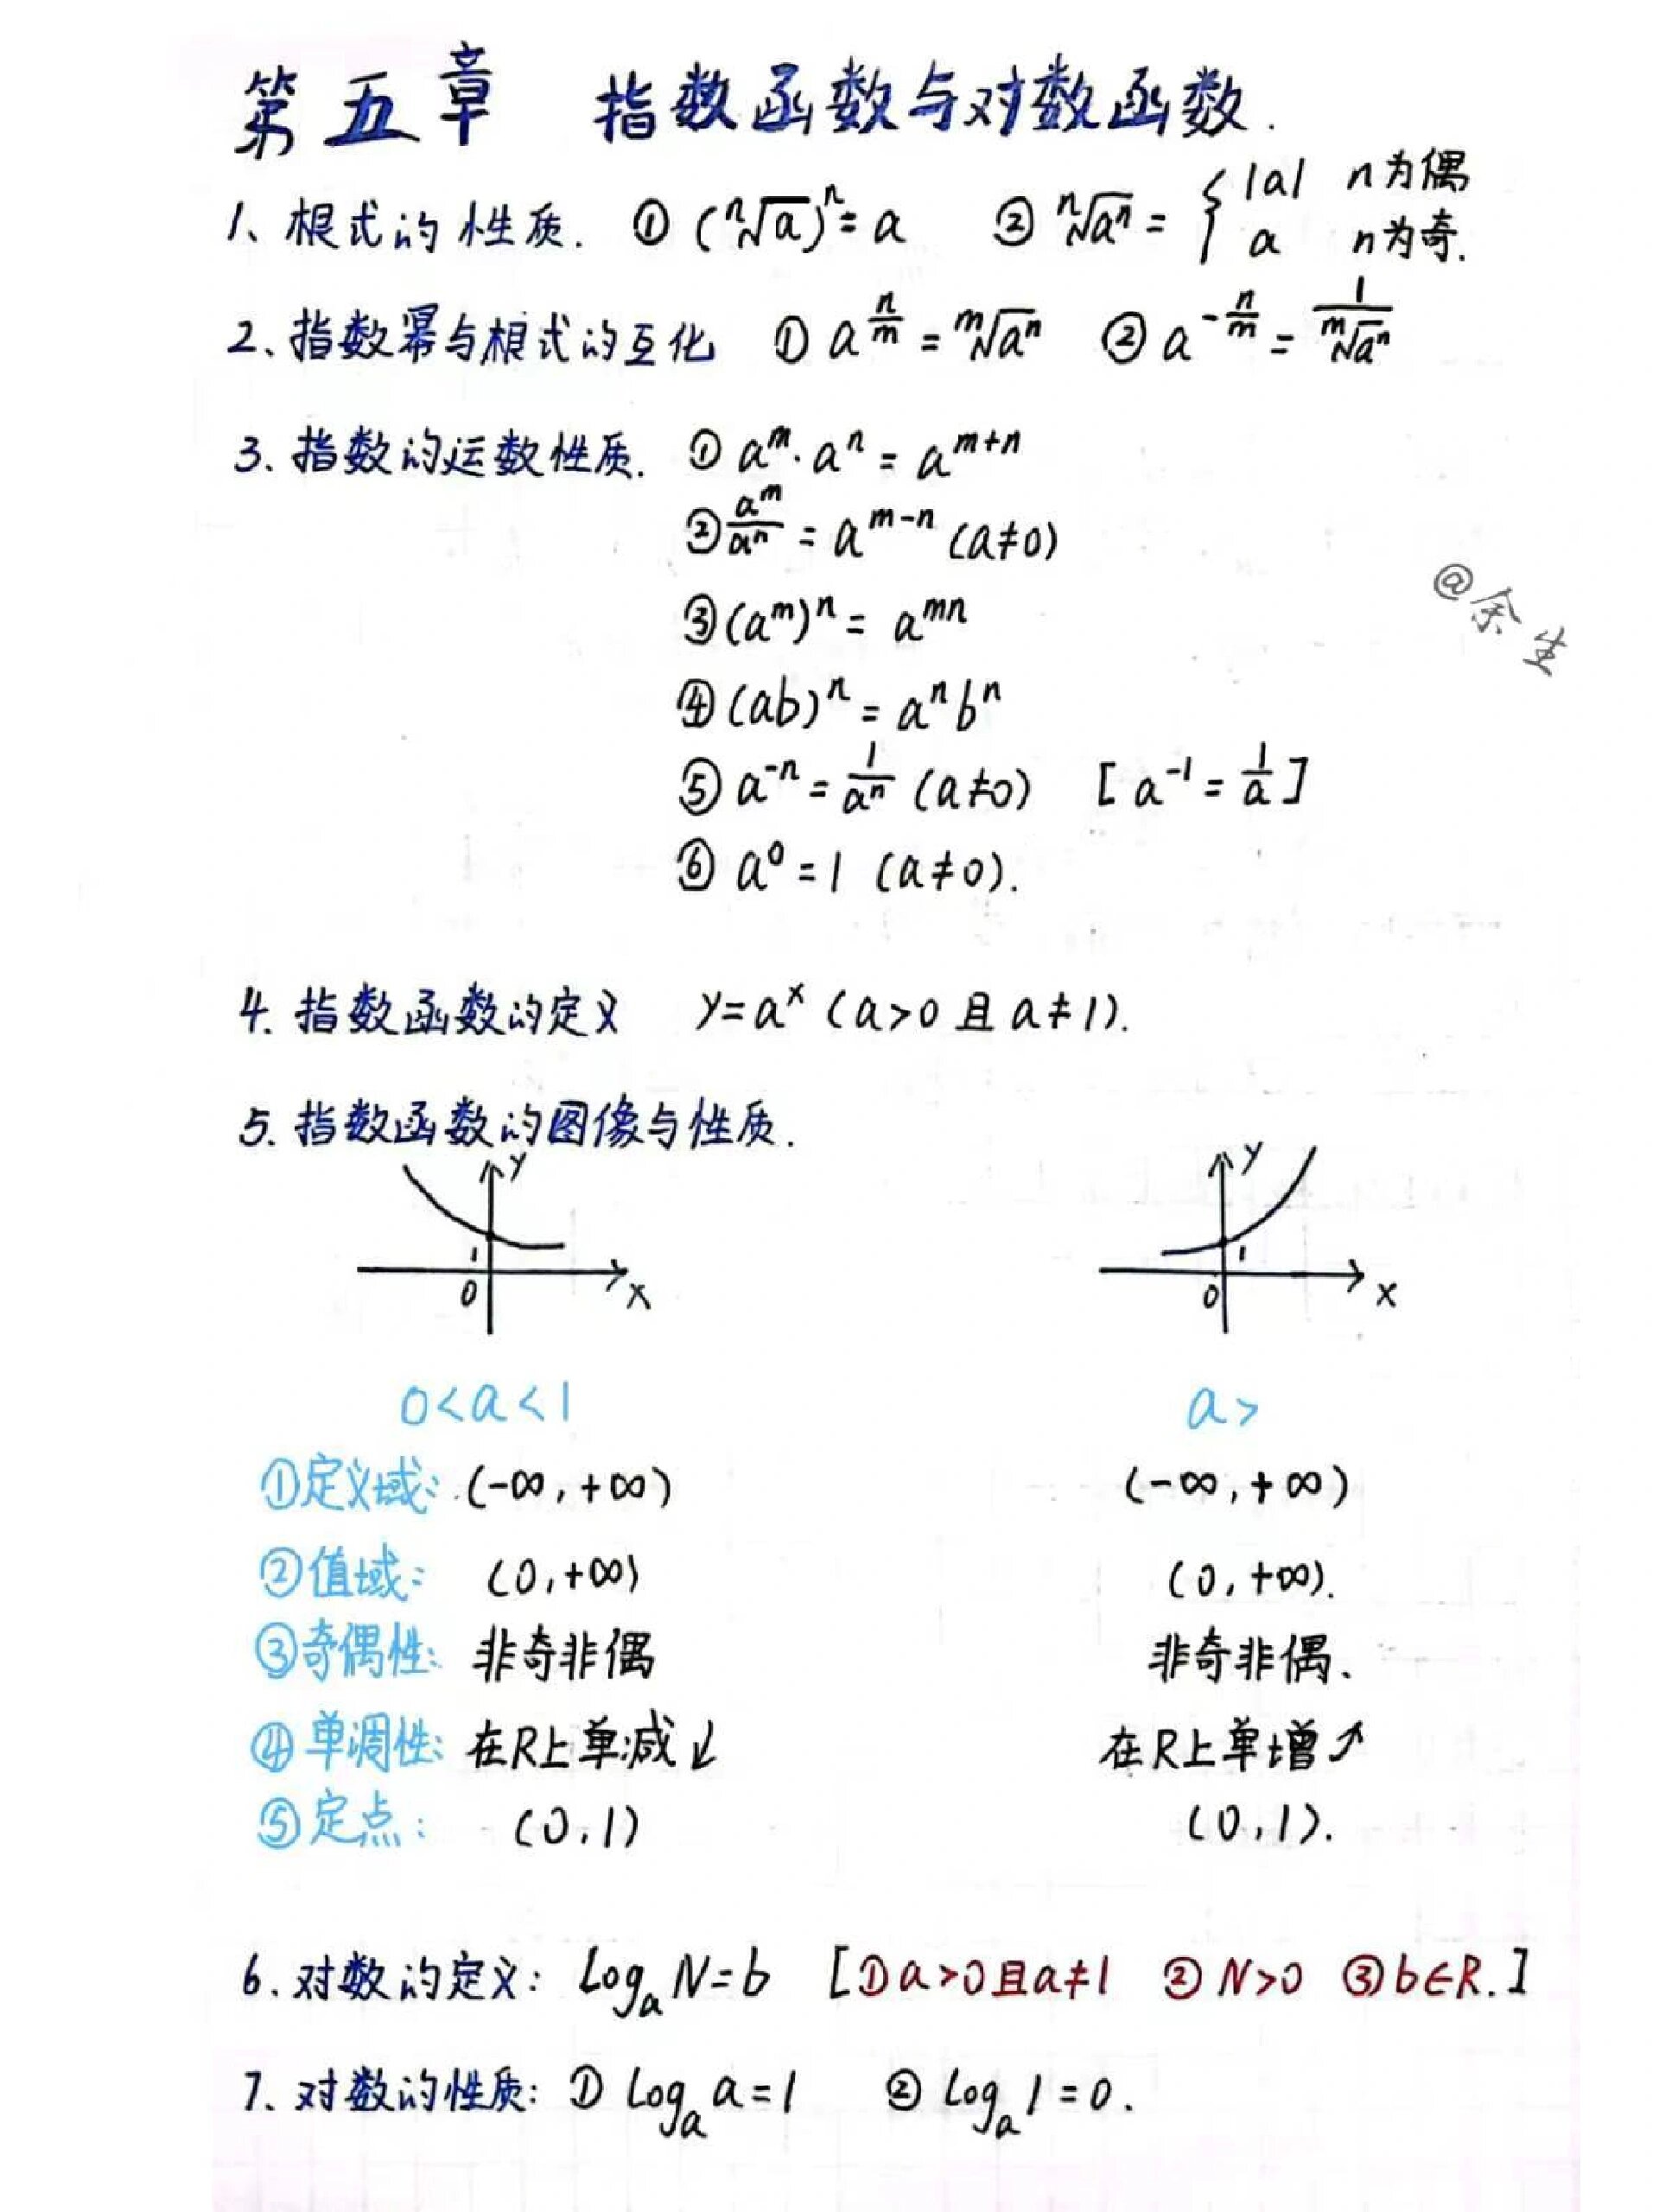 第五章 指数函数与对数函数.
1、根式的性质. ① (ⁿ√a)ⁿ = a ② ⁿ√aⁿ = { |a| n为偶
a n为奇.
2、指数幂与根式的互化 ① a^(n/m) = ᵐ√aⁿ ② a^(-n/m) = 1/ᵐ√aⁿ
3、指数的运数性质. ① aᵐ·aⁿ = aᵐ⁺ⁿ
② aᵐ/aⁿ = aᵐ⁻ⁿ (a≠0)
@余生
③ (aᵐ)ⁿ = aᵐⁿ
④ (ab)ⁿ = aⁿbⁿ
⑤ a⁻ⁿ = 1/aⁿ (a≠0) [a⁻¹ = 1/a]
⑥ a⁰ = 1 (a≠0).
4. 指数函数的定义 y=aˣ (a>0 且 a≠1).
5. 指数函数的图像与性质.
y y
1 1
0 x 0 x
0<a<1 a>
①定义域: (-∞,+∞) (-∞,+∞)
②值域: (0,+∞) (0,+∞).
③奇偶性: 非奇非偶 非奇非偶、
④单调性: 在R上单减↙ 在R上单增↗
⑤定点: (0,1) (0,1).
6、对数的定义: logₐN=b [①a>0且a≠1 ②N>0 ③b∈R.]
7、对数的性质: ① logₐa=1 ② logₐ1=0.